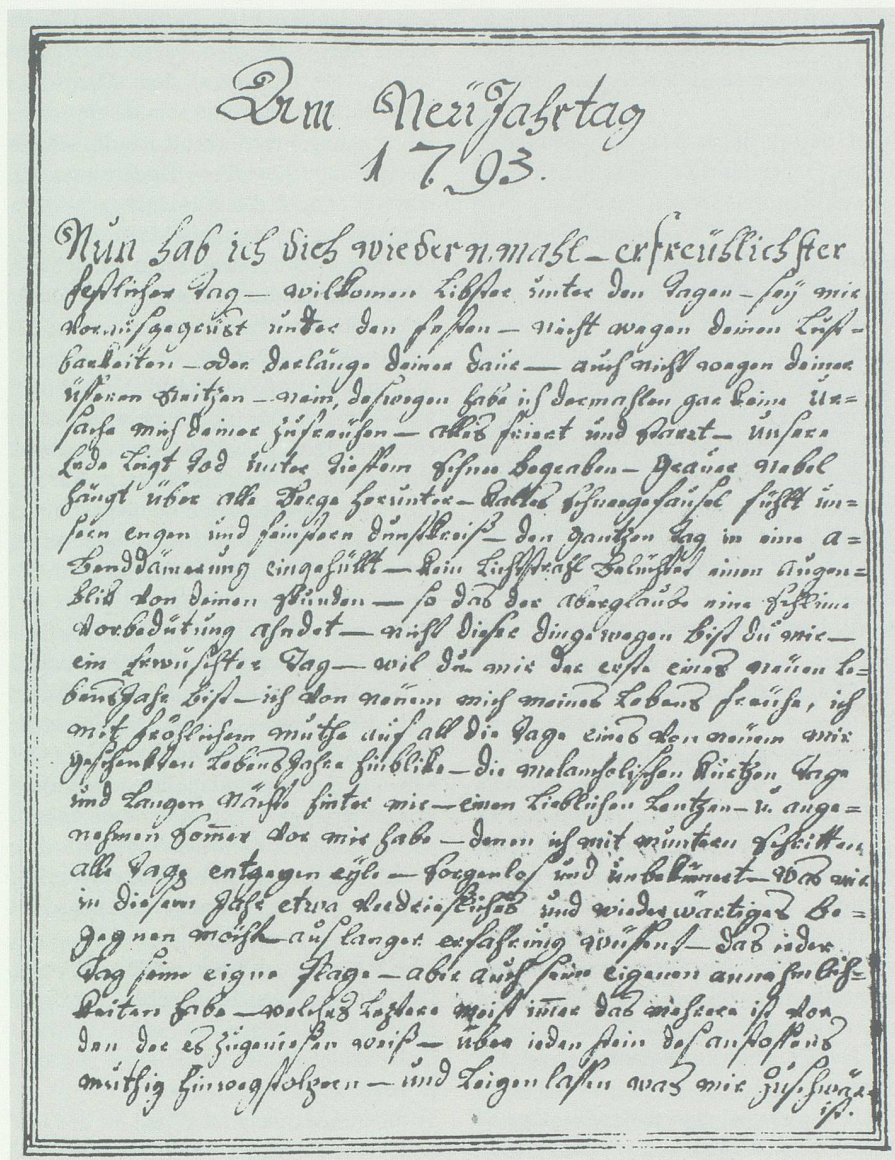 Am NeüJahrtag
1793.
Nun hab ich dich wieder n.mahl – erfreühlichster
festlicher tag – wilkomen libster unter den tagen – sey mir
vorausgegrüst unter den festen – nicht wegen deinen lust=
barkeiten – oder derlänge deiner daur – auch nicht wegen deiner
üsseren reitzen – nein, deswegen habe ich dermahlen gar keine ur=
sache mich deiner zufreühen – alles friert und starrt – unsere
Erde leigt tod unter tieffem schnee begraben – grauer nebel
hängt über alle berge herunter – kaltes schneegesausel fühlt un=
sern engen und feinstern dunstkreis – den gantzen tag in eine a=
benddämerung eingehüllt – kein lichtstrahl belüchtet einen augen=
blik von deinen stunden – so das der aberglaube eine schlime
vorbedütung ahndet – nicht dieser dinge wegen bist du mir –
ein erwüschter tag – wil du mir der erste eines neüen le=
bensJahr bist – ich von neüem mich meines lebens freühe, ich
mit fröhlichem muthe auf all die tage eines von neüem mir
geschenkten lebensJahrs hinblike – die melancholischen kurtzen tage
und langen nächte hinter mir – einen lieblichen lentzen – u. ange=
nehmen somer vor mir habe – denen ich mit muntern schritten
alle tage entgegen eyle – sorgenlos und unbekümert – was mir
in diesem Jahr etwa verdriesliches und wiederwärtiges be=
gegnen möcht – aus langer erfahrung wüssent – das ieder
tag seine eigne plage – aber auch seine eigenen annehmlich=
keiten habe – welches leztere meist imer das mehrere ist vor
den der es zugeniesen weiß – über ieden stein des anstossens
muthig hinwegstolpern – und leigen lassen was mir zuschwär
ist.